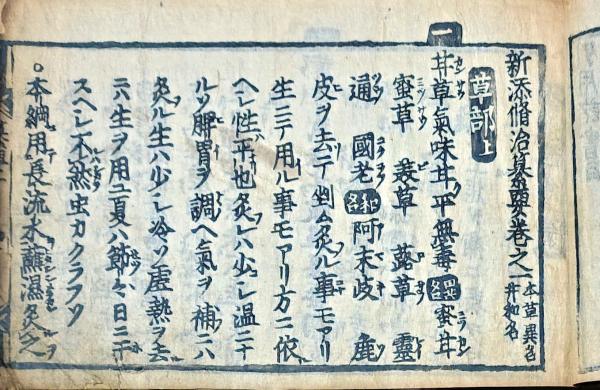 新添脩治纂要巻之一 本草異名并和名
草部上
一 甘草氣味甘平無毒 異名 蜜甘
蜜草 蕗草 靈
通 國老 和名 阿末岐 
皮ヲ去テ剉ム炙ル事モアリ
生ニテ用ル事モアリ方ニ依
ヘシ性平也炙レハ少シ温ニナ
ルソ脾胃ヲ調ヘ氣ヲ補ニハ
炙ル生ハ少シ冷ソ虚熱ヲ去
ニハ生ヲ用ユ夏ハ節々日ニ干
スヘシ不然虫カクラフソ
○本綱用長流水蘸濕炙之